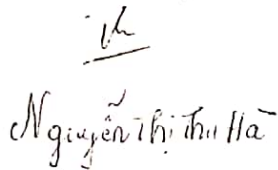 Nguyễn Thị Thu Hà